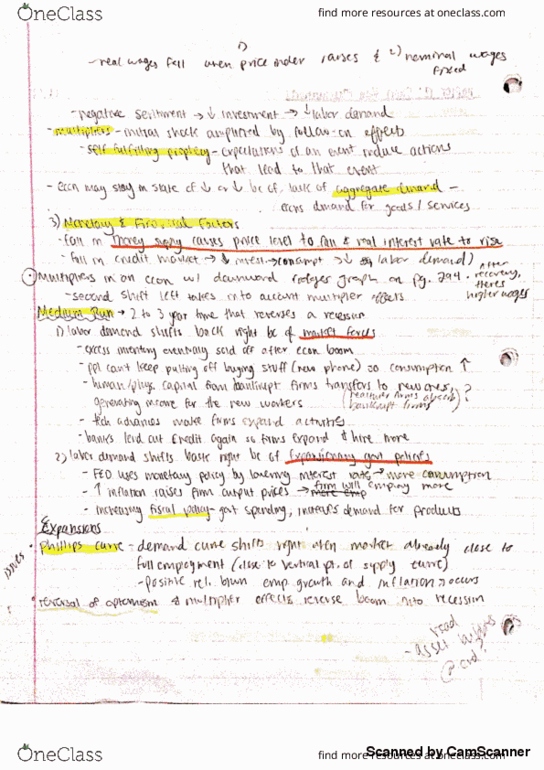 OneClass
find more resources at oneclass.com
1)
- real wages fall when price order raises & 2) nominal wages
fixed
- negative sentiment → ↓ investment → ↓ labor demand
- multipliers - initial shock amplified by follow-on effects
- self fulfilling prophecy - expectations of an event induce actions
that lead to that event
- econ may stay in state of ↓ or ↓ bc of lack of aggregate demand -
econs demand for goods / services
3) Monetary & Financial Factors
- fall in money supply causes price level to fall & real interest rate to rise
- fall in credit market → ↓ invest → consumpt → ↓ labor demand)
Multipliers in an econ w/ downward wages graph on pg. 294
• After recovery, theres higher wages
- second shift left takes into account multiplier effects
Medium Run → 2 to 3 year time that reverses a recession
1) labor demand shifts back right bc of market forces
- excess inventory eventually sold off after econ boom
- ppl can't keep putting off buying stuff (new phone) so consumption ↑
- human/phys. capital from bankrupt firms transfers to new ones,
generating income for the new workers
(healthier firms absorb bankrupt firms)?
- tech advances make firms expand activities
- banks lend out credit again so firms expand & hire more
2) labor demand shifts back right bc of expansionary gov policies
- FED uses monetary policy by lowering interest rate → more consumption
- ↑ inflation raises firm output prices → firm will employ more
more emp
- increasing fiscal policy - govt spending, increases demand for products
Expansions
• phillips curve - demand curve shifts right when market already close to
full employment (close to vertical pt. of supply curve)
- positive rel. b/wn emp growth and inflation occurs
• reversal of optimism & multiplier effects reverse boom into recession
read
- asset
@ end?
Scanned by CamScanner
OneClass
find more resources at oneclass.com